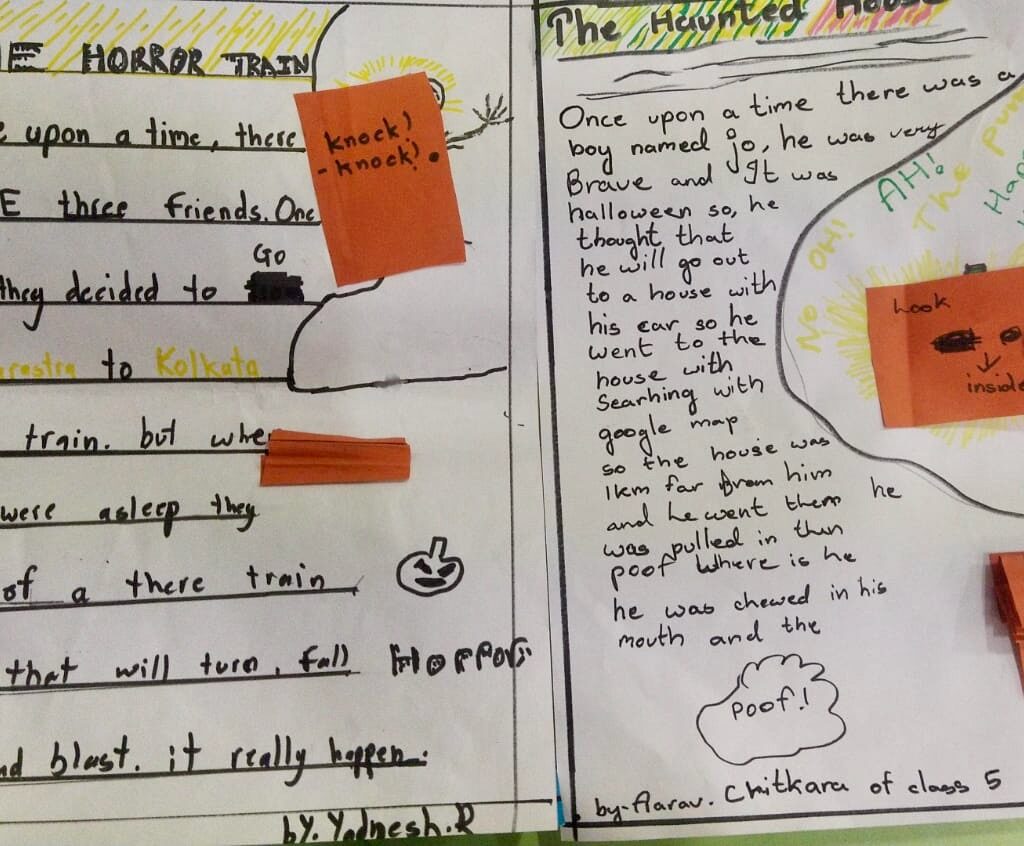 E HORROR TRAIN
upon a time, there
E three friends. One
Go
they decided to
arastra to Kolkata
train. but whe
were asleep they
of a there train
that will turn, fall
nd blast. it really happen.
Horror
by. Yadnesh.R
knock!
-knock!
The Haunted House
Once upon a time there was a
boy named jo, he was very
Brave and It was
halloween so, he
thought that
he will go out
to a house with
his car so he
went to the
house with
Searhing with
google map
so the house was
1km far from him
and he went them he
was pulled in then
poof where is he
he was chewed in his
mouth and the
poof!
by-Aarav. Chitkara of class 5
NO OH!
AH!
The
look
inside